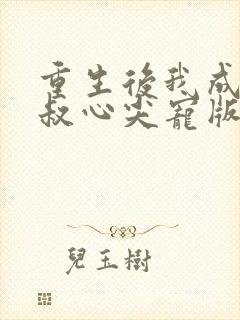 重生後我成
叔心尖寵版
兒玉樹